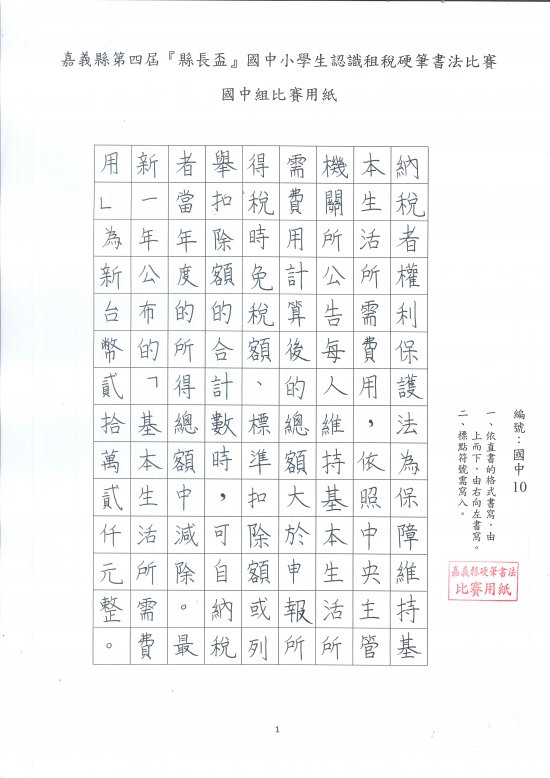 嘉義縣第四屆『縣長盃』國中小學生認識租稅硬筆書法比賽
國中組比賽用紙
編號：國中10
一、依直書的格式書寫，由
上而下，由右向左書寫。
二、標點符號需寫入。
嘉義縣硬筆書法
比賽用紙
納稅者權利保護法為保障維持基
本生活所需費用，依照中央主管
機關所公告每人維持基本生活所
需費用計算後的總額大於申報所
得稅時免稅額、標準扣除額或列
舉扣除額的合計數時，可自納稅
者當年度的所得總額中減除。最
新一年公布的「基本生活所需費
用」為新台幣貳拾萬貳仟元整。
1